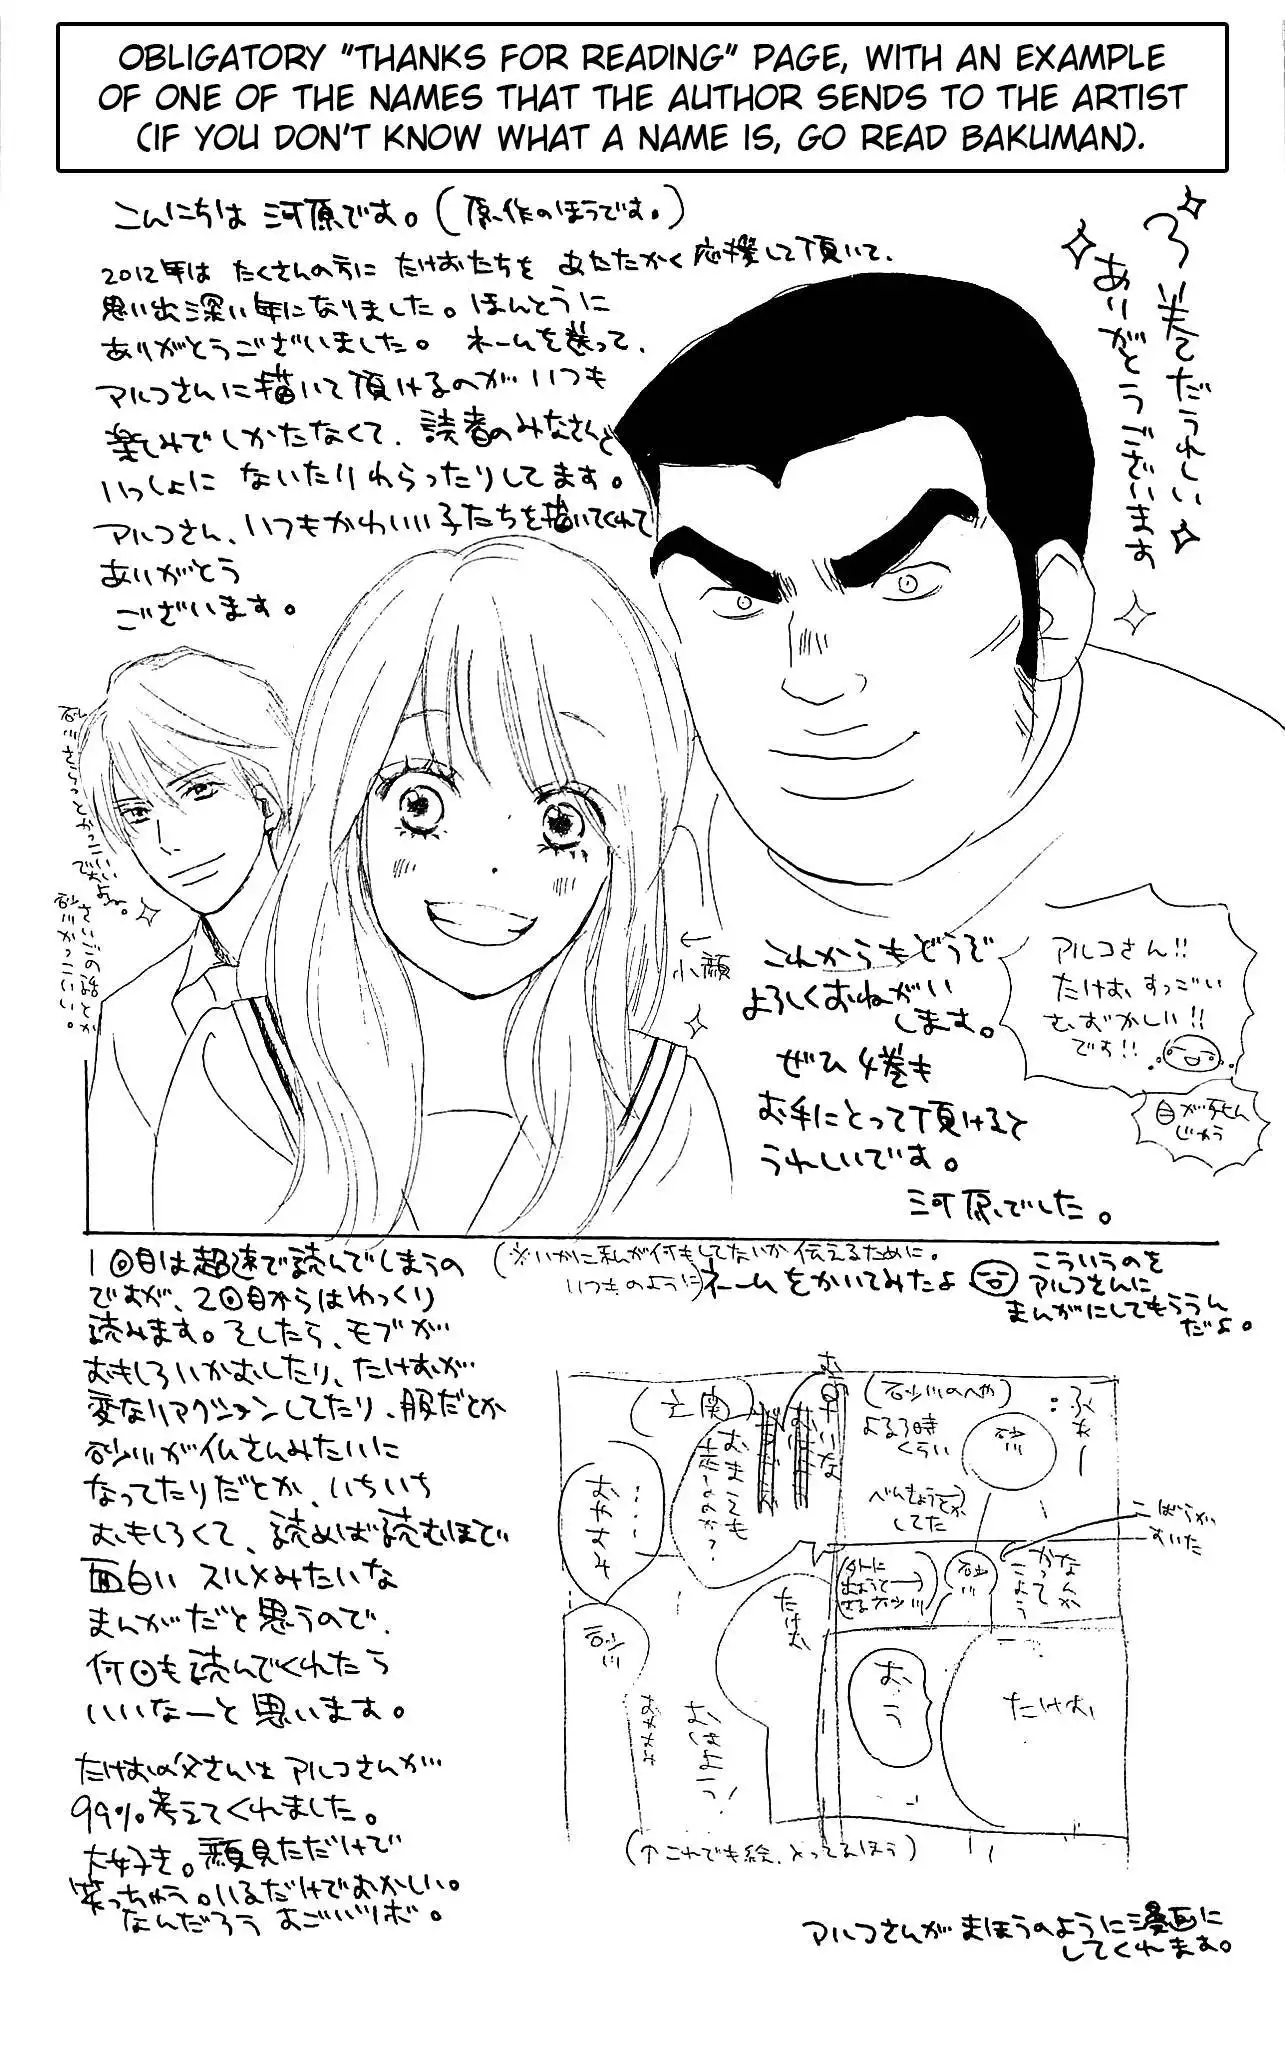 OBLIGATORY "THANKS FOR READING" PAGE, WITH AN EXAMPLE
OF ONE OF THE NAMES THAT THE AUTHOR SENDS TO THE ARTIST
(IF YOU DON'T KNOW WHAT A NAME IS, GO READ BAKUMAN).
こんにちは 河原です。(原作のほうです。)
2012年は たくさんの方に たけおたちを あたたかく応援して頂いて、
思い出深い年になりました。ほんとうに
ありがとうございました。 ネームを送って、
アルコさんに描いて頂けるのが いつも
楽しみでしかたなくて、読者のみなさんと
いっしょに ないたりわらったりしてます。
アルコさん、いつもかわいい子たちを描いてくれて
ありがとう
ございます。
3巻までだうれしい
ありがとうございます
砂川さらっとかっこいい
ですよね。
さいごの話とか
砂川かっこいい。
←
小顔
これからもどうぞ
よろしくおねがい
します。
ぜひ 4巻も
お手にとって頂けると
うれしいです。
河原でした。
アルコさん!!
たけお、すっごい
むずかしい!!
です!!
1回目は超速で読んでしまうの
ですが、2回目からはゆっくり
読みます。そしたら、モブが
おもしろいかおしたり、たけおが
変なリアクションしてたり、服だとか
砂川が仏さんみたいに
なってたりだとか、いちいち
おもしろくて、読めば読むほど
面白い スルメみたいな
まんがだと思うので、
何回も読んでくれたら
いいなーと思います。
たけおの父さんは アルコさんが
99%考えてくれました。
大好き。顔見ただけで
笑っちゃう。いるだけでおかしい。
なんだろう すごいツボ。
(※いかに私が何もしてないか伝えるために。
いつものように)ネームをかいてみたよ
こういうのを
アルコさんに
まんがにしてもらうん
だよ。
ふぁー
(砂川のへや)
よる3時
くらい
砂川
べんきょうとか
してた
こばらが
すいた
なんか
かって
こよう
砂川
(外に
出ようと
する砂川)
たけお
おう
(玄関)
おまえも
走んのか?
たけお
おはよう!
……
おやすみ
砂川
おやすみ
(↑これでも絵、とってるほう)
アルコさんが まほうのように漫画に
してくれます。